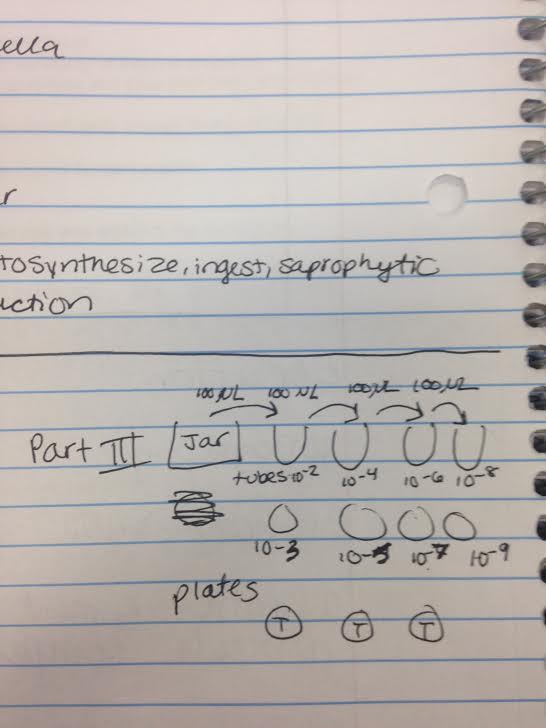 ella
r
tosynthesize, ingest, saprophytic
uction
100 μL 100 μL 100 μL 100 μL
Part III Jar
tubes 10-2 10-4 10-6 10-8
10-3 10-5 10-7 10-9
plates
T T T